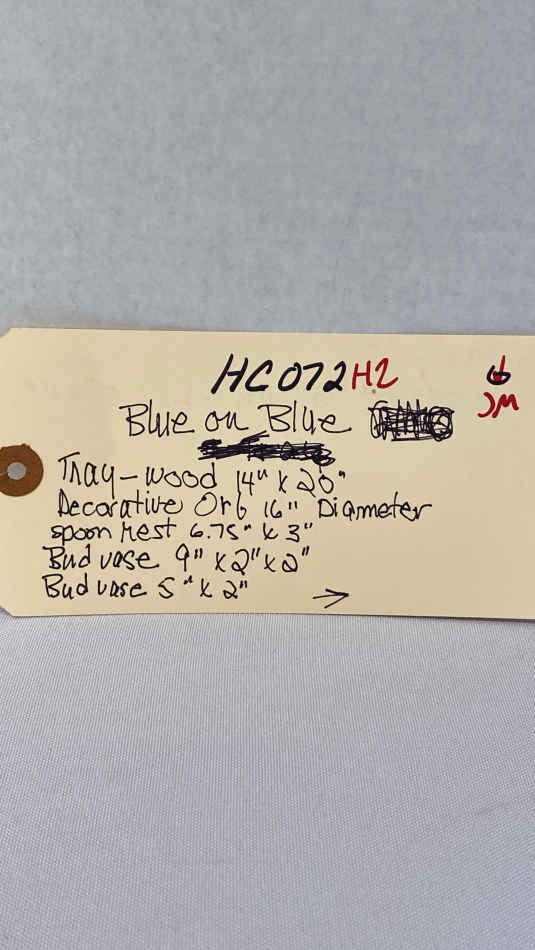 HC072H2
Blue on Blue
Tray-wood 14" x 20"
Decorative Orb 16" Diameter
spoon rest 6.75" x 3"
Bud vase 9" x 2" x 2"
Bud vase 5" x 2"
→